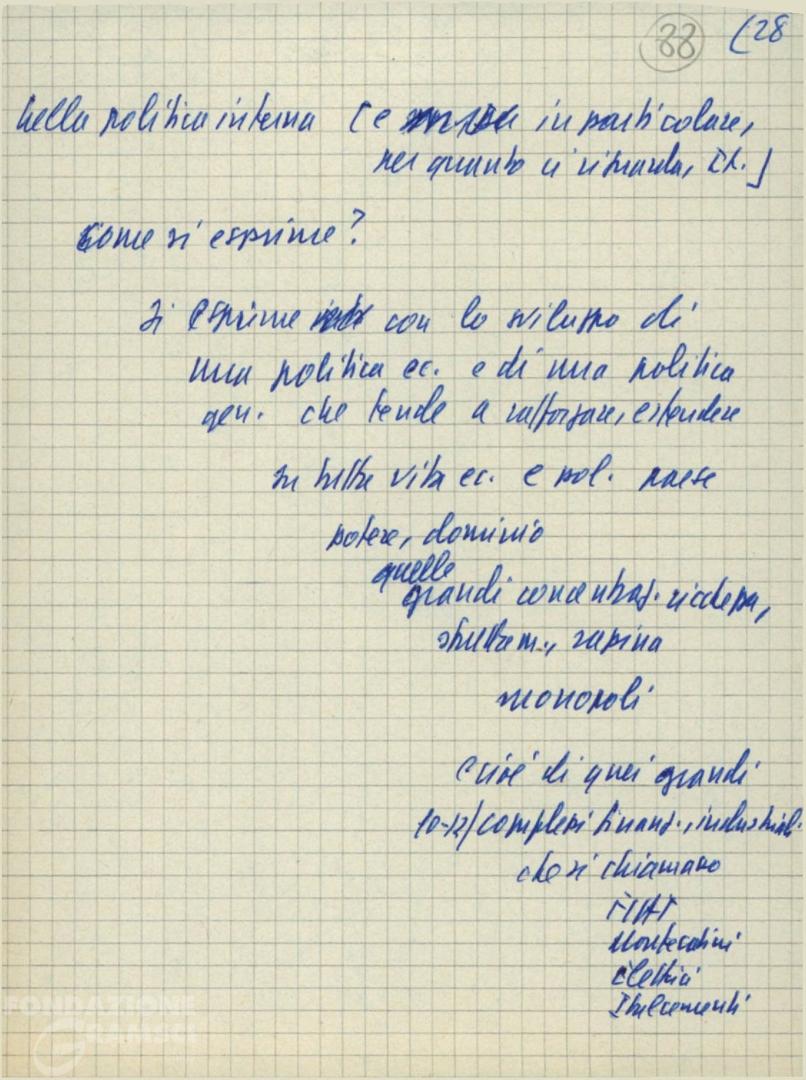 88 (28
nella politica interna (e in particolare,
per quanto ci riguarda, It.]
Come si esprime?
si esprime con lo sviluppo di
una politica ec. e di una politica
gen. che tende a rafforzare, estendere
su tutta vita ec. e pol. paese
potere, dominio
quelle
grandi concentraz. ricchezza,
sfruttam., rapina
monopoli
cioè di quei grandi
10-12/complessi finanz., industriali
che si chiamano
FIAT
Montecatini
Elettrici
Italcementi
FONDAZIONE
GRAMSCI